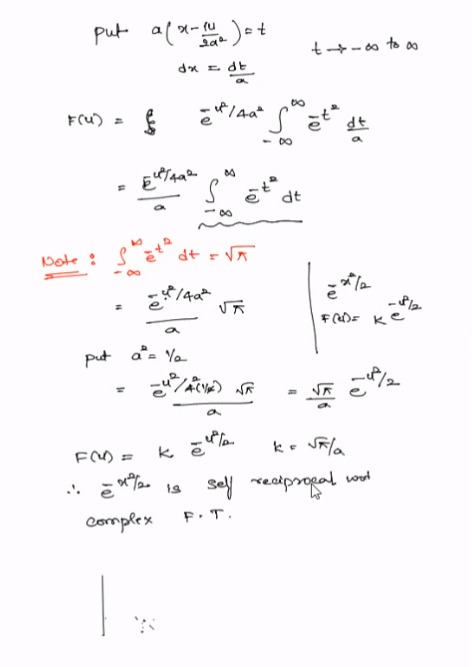 put a(x - iu/2a²) = t
t → -∞ to ∞
dx = dt/a
F(u) = e^-u²/4a² ∫_-∞^∞ e^-t² dt/a
= e^-u²/4a² / a ∫_-∞^∞ e^-t² dt
Note : ∫_-∞^∞ e^-t² dt = √π
= e^-u²/4a² / a √π
e^-x²/2
F(u) = k e^-u²/2
put a² = 1/2
= e^-u²/4(1/2) √π / a = √π/a e^-u²/2
F(u) = k e^-u²/2 k = √π/a
∴ e^-x²/2 is self reciprocal wrt
complex F.T.